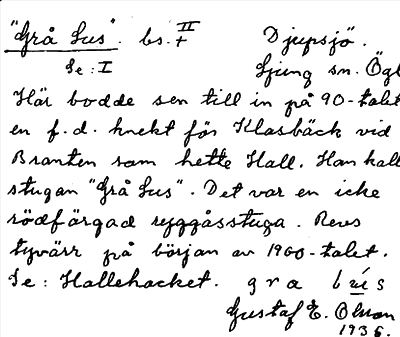 "Grå Lus". bs. † II Djupsjö.
Se: I Ljung sn. Ögl
Här bodde sen till in på 90-talet
en f.d. knekt för Klasbäck vid
Branten som hette Hall. Han kall
stugan "Grå Lus". Det var en icke
rödfärgad ryggåsstuga. Revs
tyvärr på början av 1900-talet.
Se: Hallehacket. g r a
Gustaf E. Olsson
1936.